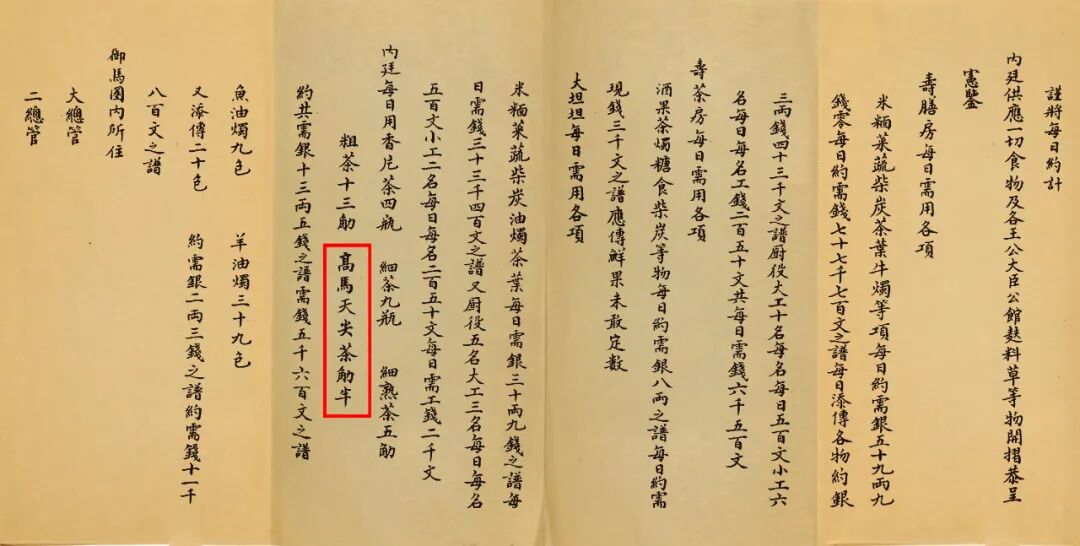 謹將每日約計
內廷供應一切食物及各王公大臣公館麩料草等物開摺恭呈
憲鑒
壽膳房每日需用各項
米糆菜蔬柴炭茶葉牛燭等項每日約需銀五十九兩九
錢零每日約需錢七十七千七百文之譜每日添傳各物約銀
三兩錢四十三千文之譜厨役大工十名每名每日五百文小工六
名每日每名工錢二百五十文共每日需錢六千五百文
壽茶房每日需用各項
酒果茶燭糖食柴炭等物每日約需銀八兩之譜每日約需
現錢三千文之譜應傳鮮果未敢定數
大坦坦每日需用各項
米糆菜蔬柴炭油燭茶葉每日需銀三十兩九錢之譜每
日需錢三十三千四百文之譜又厨役五名大工三名每日每名
五百文小工二名每日每名二百五十文每日需工錢二千文
內廷每日用香片茶四瓶 細茶九瓶 細熟茶五觔
粗茶十三觔 髙馬天尖茶觔半
約共需銀十三兩五錢之譜需錢五千六百文之譜
魚油燭九色 羊油燭三十九色
又添傳二十色 約需銀二兩三錢之譜約需錢十一千
八百文之譜
御馬圈內所住
大總管
二總管